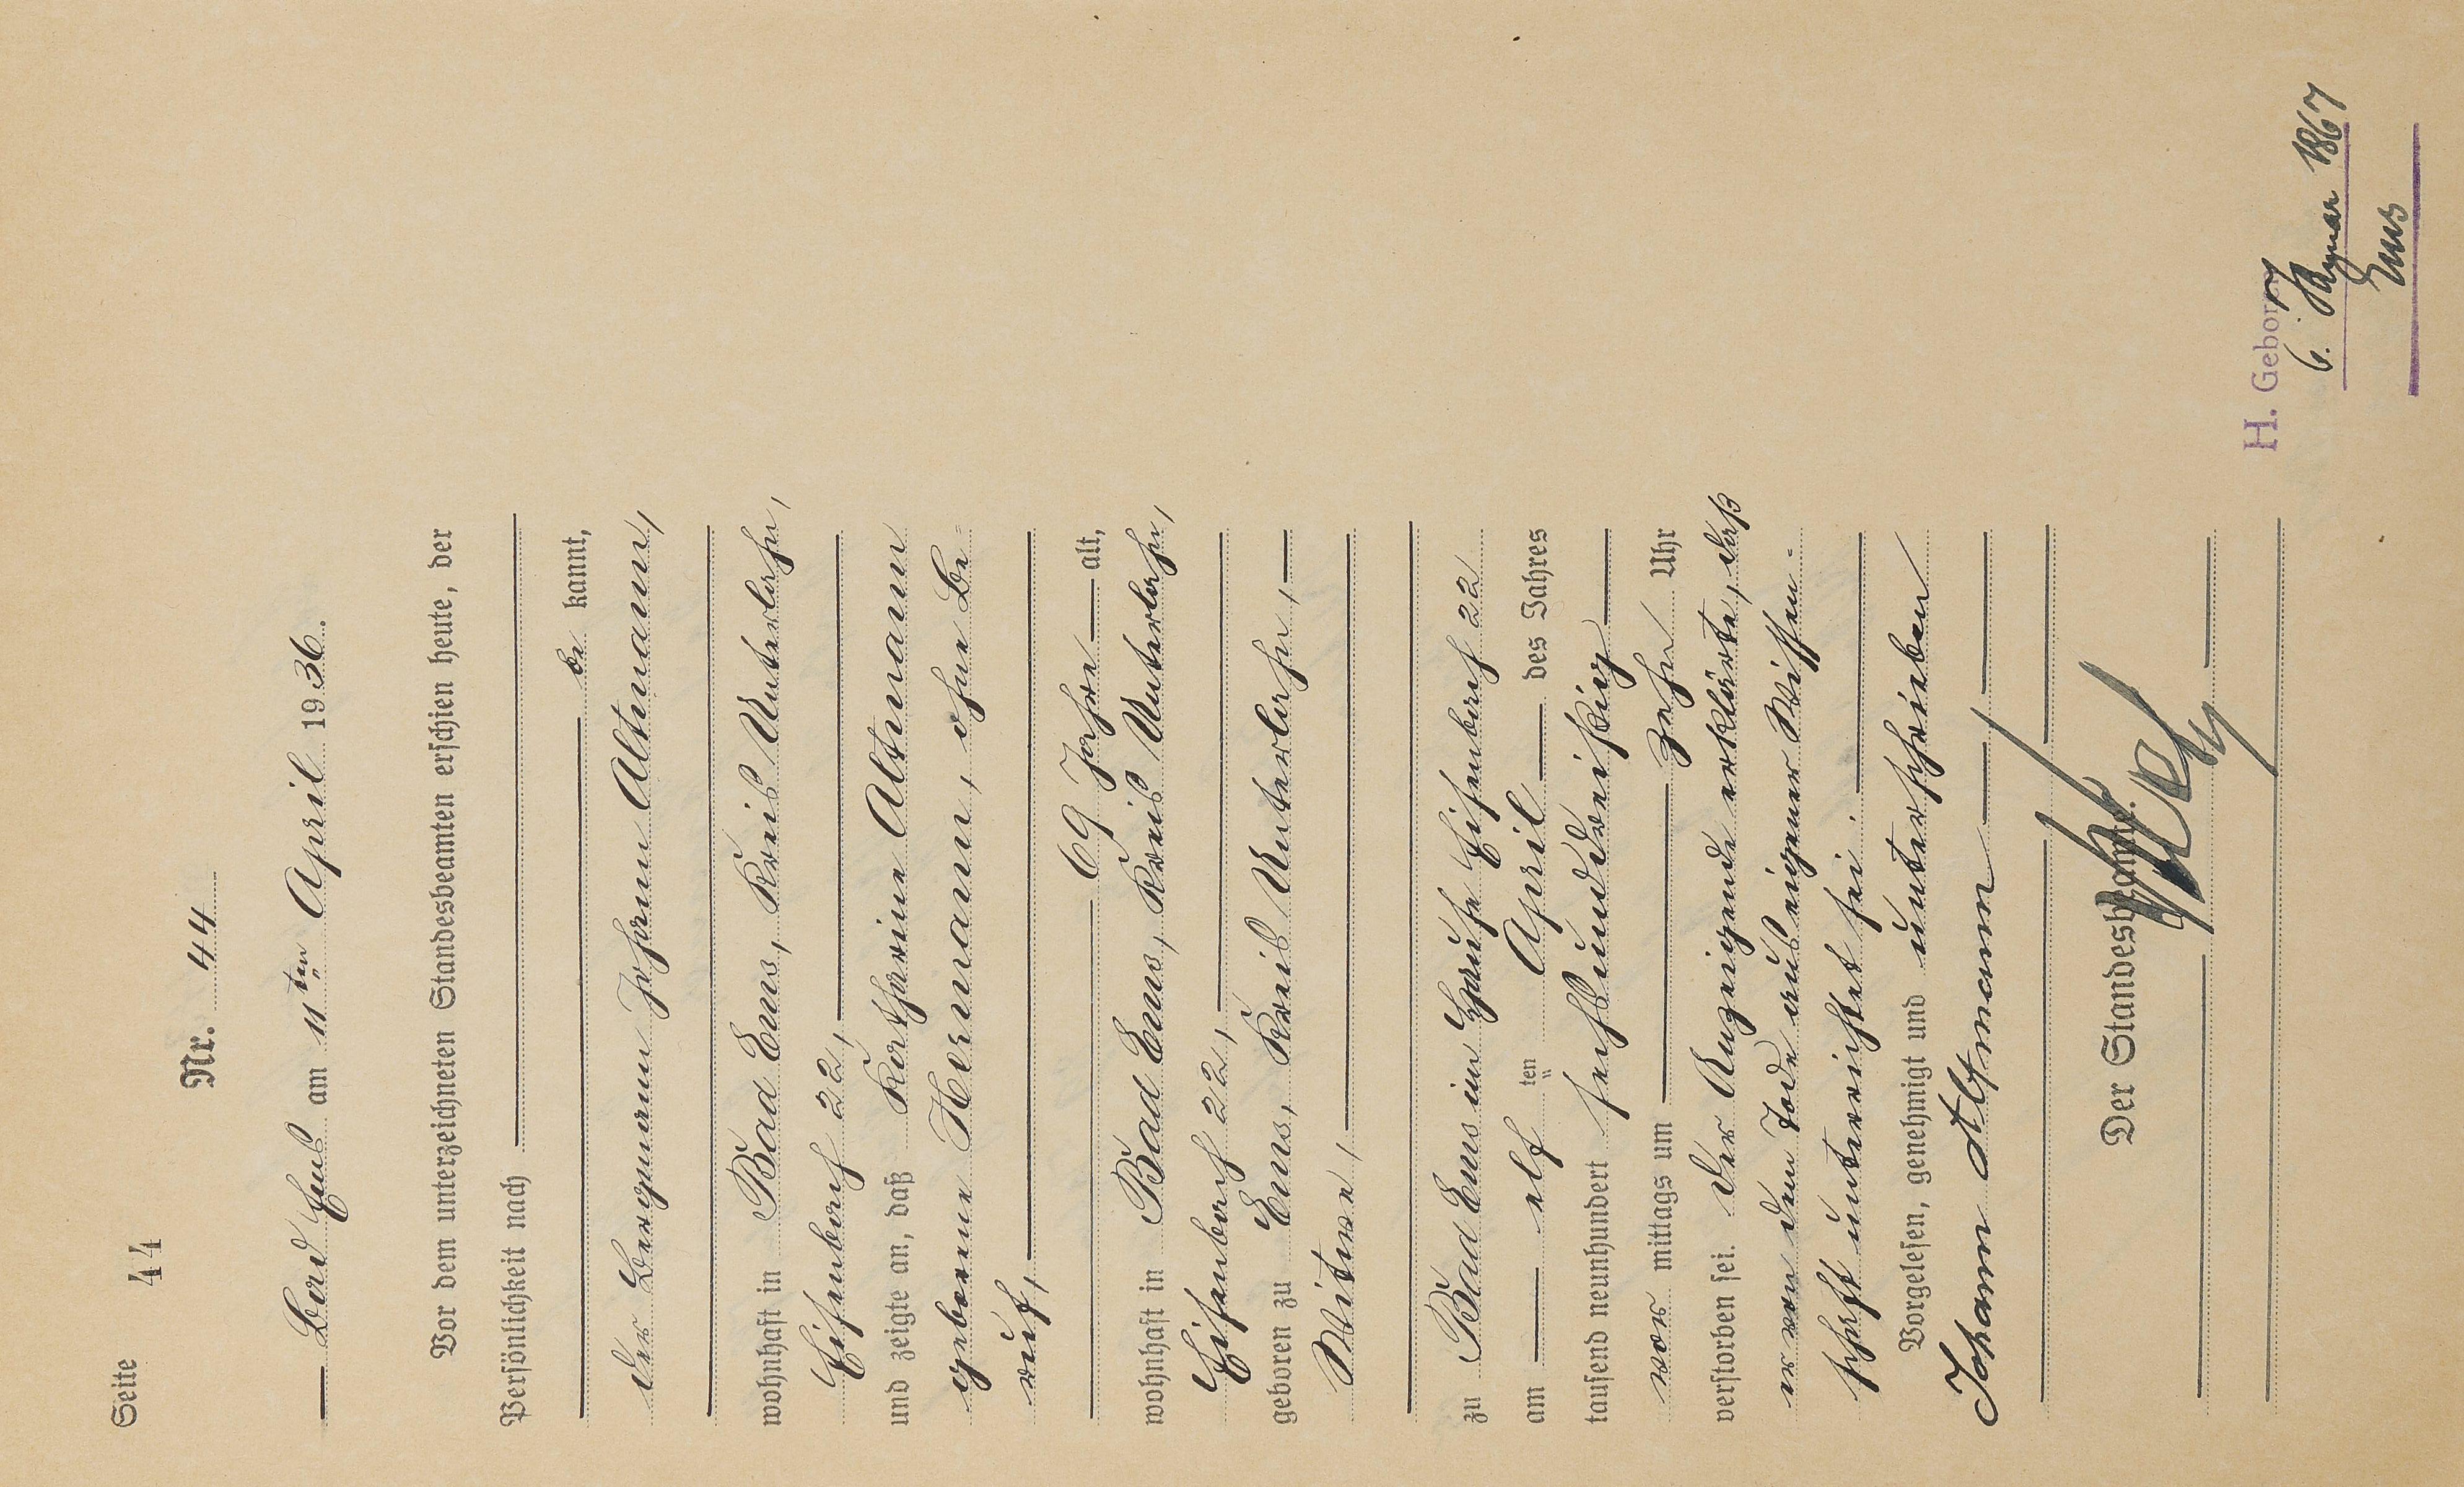 Seite 44
Nr. 44
Bad Ems am 11ten April 1936.
Vor dem unterzeichneten Standesbeamten erschien heute, der
Persönlichkeit nach
be kannt,
der Bergmann Johann Altmann,
wohnhaft in Bad Ems, Kreis Unterlahn,
Eisenbach 22,
und zeigte an, daß Katharine Altmann
geborene Hermann, ohne Be-
ruf,
69 Jahre alt,
wohnhaft in Bad Ems, Kreis Unterlahn,
Eisenbach 22,
geboren zu Ems, Kreis Unterlahn,
Witwe,
zu Bad Ems im Hause Eisenbach 22
am elf ten April des Jahres
tausend neunhundert sechsunddreißig
vor mittags um zehn Uhr
verstorben sei. Der Anzeigende erklärte, daß
er von dem Tode aus eigener Wissen-
schaft unterrichtet sei.
Vorgelesen, genehmigt und unterschrieben
Johann Altmann
Der Standesbeamte.
H. Geboren
6. Januar 1867
Ems